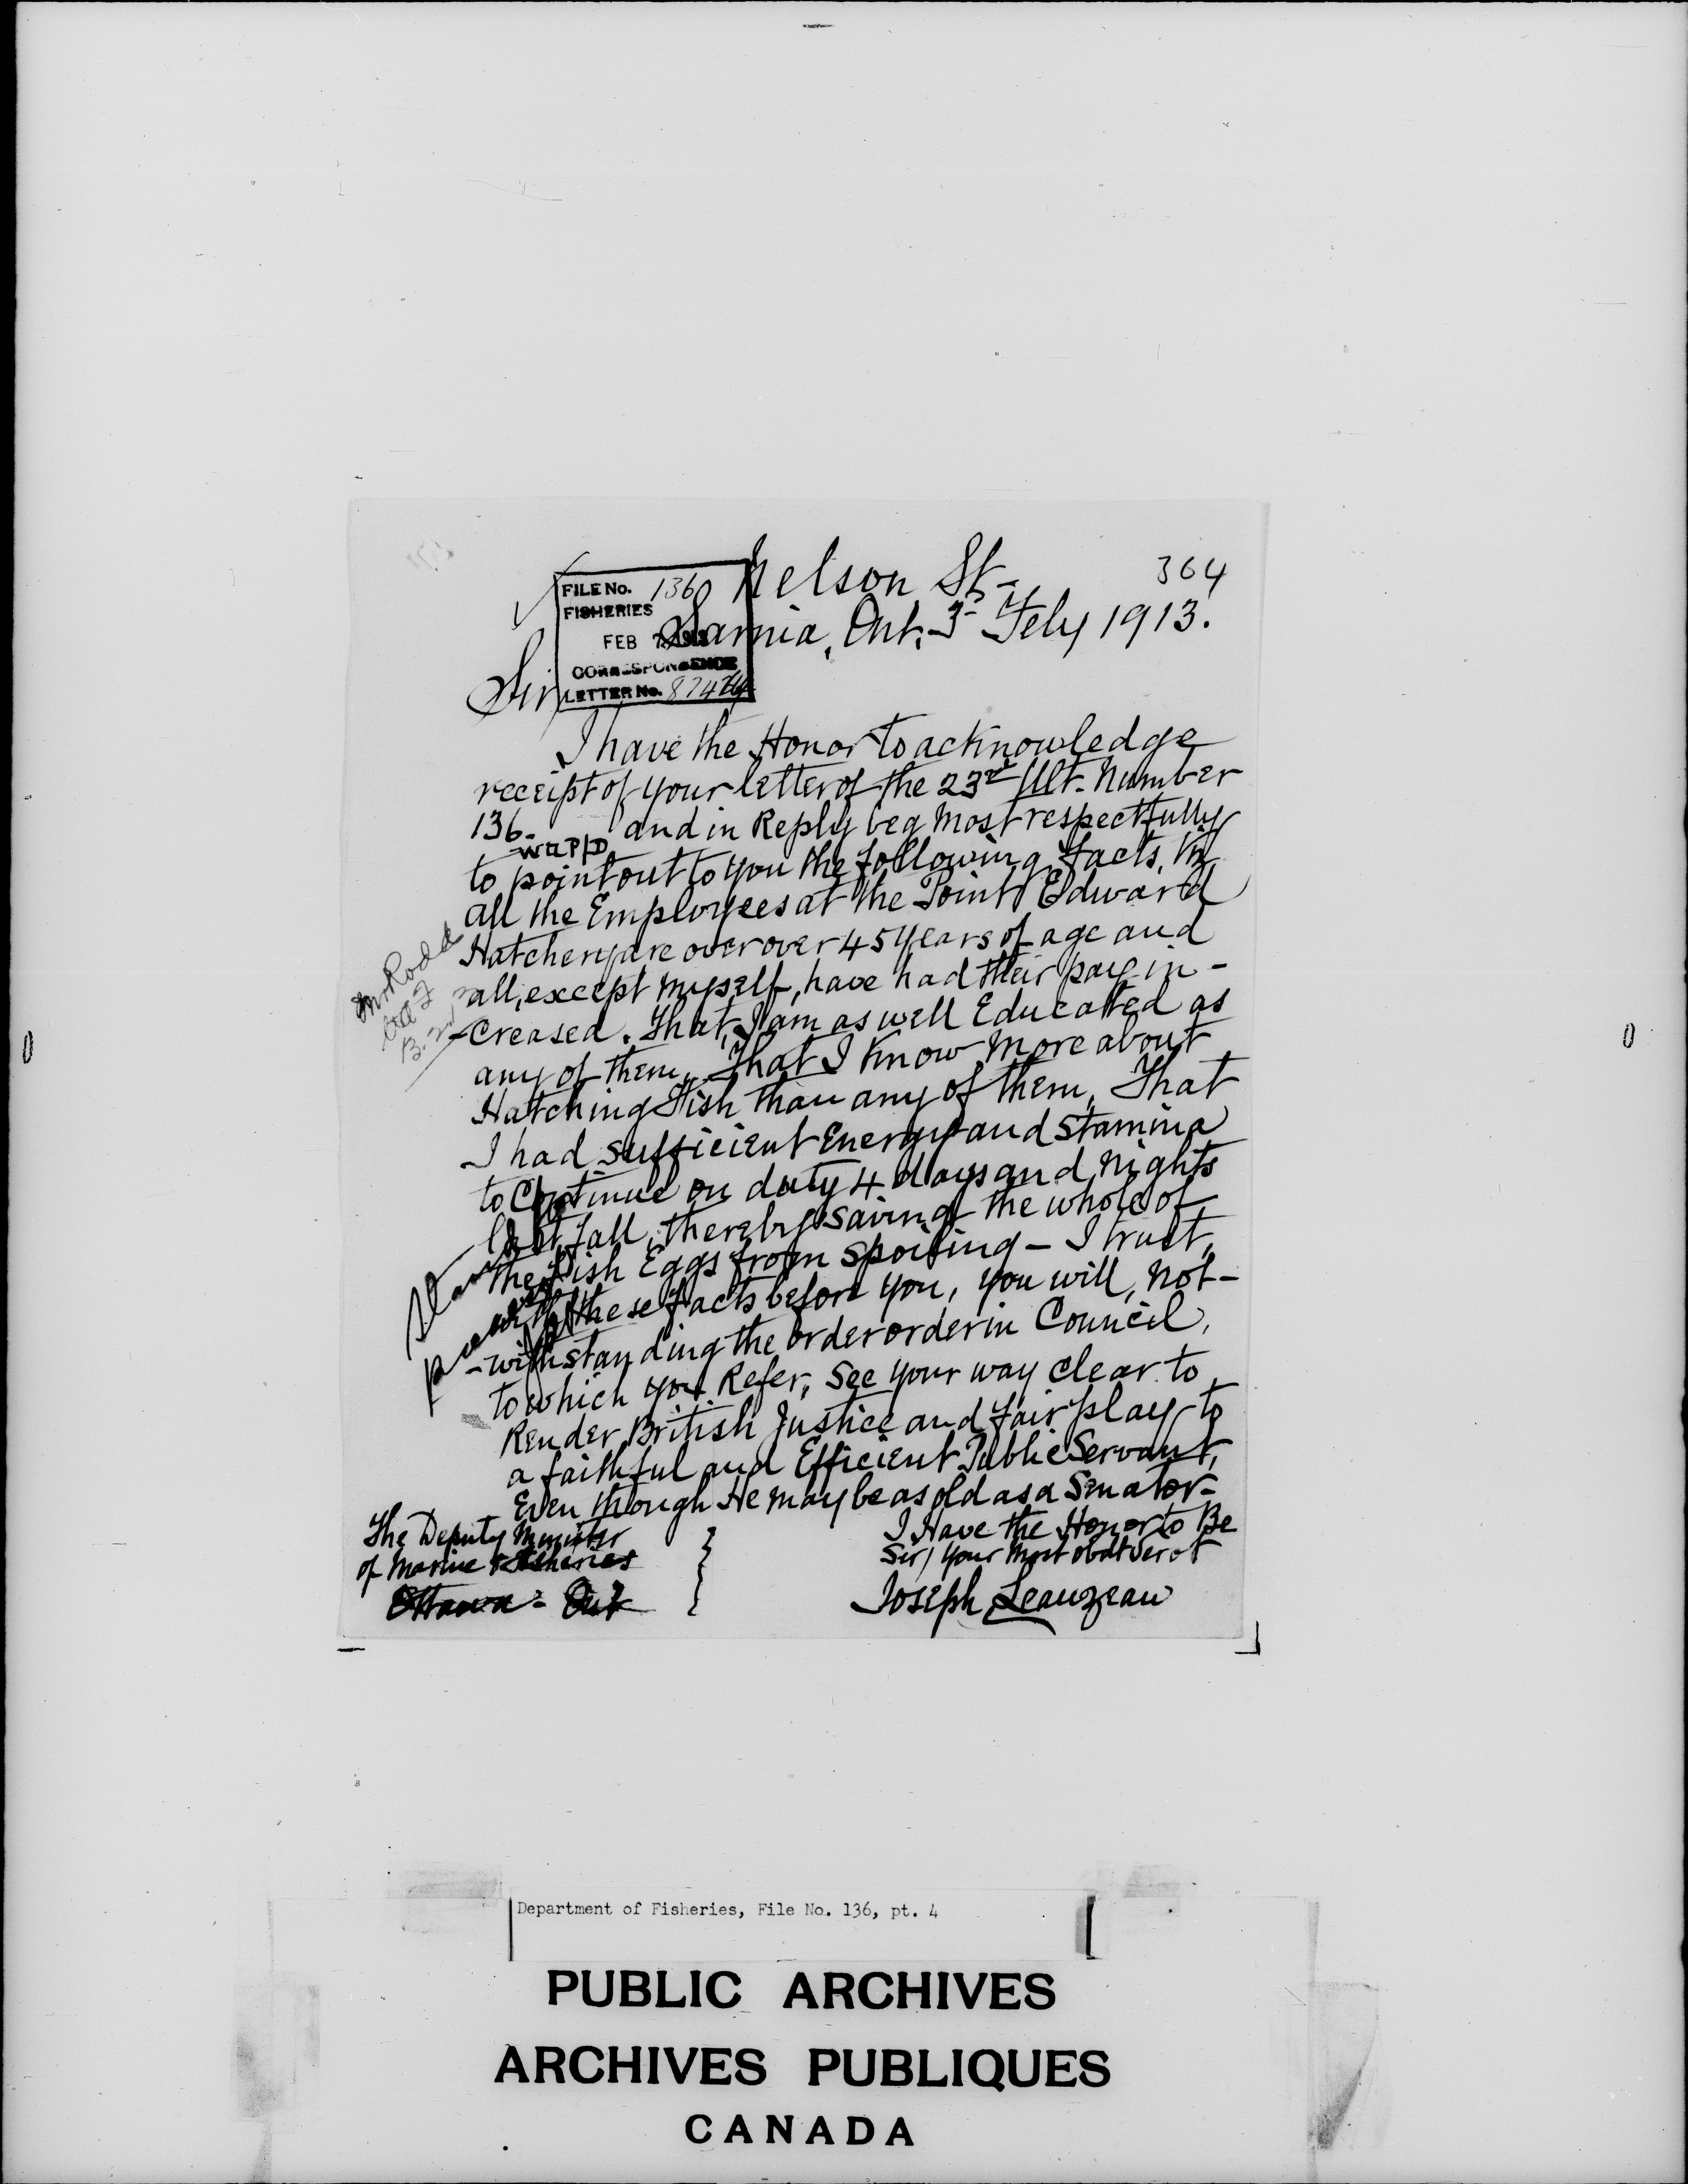 364
Nelson St-
Sarnia, Ont, 3rd Feby 1913.
FILE No. 136
FISHERIES
FEB 7 1913
CORRESPONDENCE
LETTER No.
Sir
I have the Honor to acknowledge
receipt of your letter of the 23rd Ult. Number
136. and in Reply beg most respectfully
to point out to you the following facts,
all the Employees at the Point Edward
Hatchery are over over 45 years of age and
all, except myself, have had their pay in-
-creased. That, I am as well Educated as
any of them, That I Know more about
Hatching Fish than any of them, That
I had sufficient Energy and Stamina
to Continue on duty 4 days and nights
last fall, thereby saving the whole of
the Fish Eggs from spoiling - I trust,
with these facts before you, you will, not-
-withstanding the order order in Council,
to which you Refer, See your way clear to
Render British Justice and fair play to
a faithful and Efficient Public Servant,
Even though He may be as old as a Senator-
I Have the Honor to Be
Sir, your most obdt Servt
Joseph Leauzeau
The Deputy Minister
of Marine & Fisheries
Ottawa - Ont
Mr Rodd
Department of Fisheries, File No. 136, pt. 4
PUBLIC ARCHIVES
ARCHIVES PUBLIQUES
CANADA